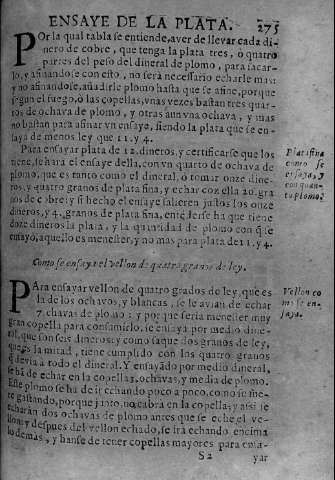 ENSAYE DE LA PLATA. 275
POr la qual tabla se entiende, aver de llevar cada di-
nero de cobre, que tenga la plata tres, ò quatro
partes del peso del dineral de plomo, para sacar-
lo, y afinandose con esto, no será necessario echarle mas:
y no afinandose, añadirle plomo hasta que se afine, porque
segun el fuego, ò las copellas, vnas vezes bastan tres quar-
tos de ochava de plomo, y otras aun vna ochava, y mas
no bastan para afinar vn ensaye, siendo la plata que se en-
saya de menos ley que 11. y 4.
Para ensayar plata de 12. dineros, y certificarse que los
tiene, se hará el ensaye della, con vn quarto de ochava de
plomo, que es tanto como el dineral, ò tomar onze dine-
ros, y quatro granos de plata fina, y echar con ella 20. gra-
nos de cobre: y si hecho el ensaye salieren justos los onze
dineros, y 4. granos de plata fina, entenderse ha que tiene
doze dineros la plata, y la quantidad de plomo con que se
ensayó, aquello es menester, y no mas para plata de 11. y 4.
Plata fina
como se
ensaya, y
con quan-
to plomo?
Como se ensaye el vellon de quatro granos de ley.
PAra ensayar vellon de quatro grados de ley, que es
la de los ochavos, y blancas, se le avian de echar
7. chavas de plomo: y por que seria menester muy
gran copella para consumirlo, se ensaya por medio dine-
ral, que son seis dineros; y como saque dos granos de ley,
que es la mitad, tiene cumplido con los quatro granos
q̃ devia a todo el dineral. Y ensayado por medio dineral,
se há de echar en la copella 3. ochavas, y media de plomo.
Este plomo se ha de ir echando poco a poco, como se me-
re gastando, porque junto, no cabrà en la copella; y assi se
echarán dos ochavas de plomo antes que se eche el ve-
llon, y despues del vellon echado, se irá echando encima
lo demas, y hanse de tener copellas mayores para ensa-
Vellon co
mo se en-
saya.
S 2 yar